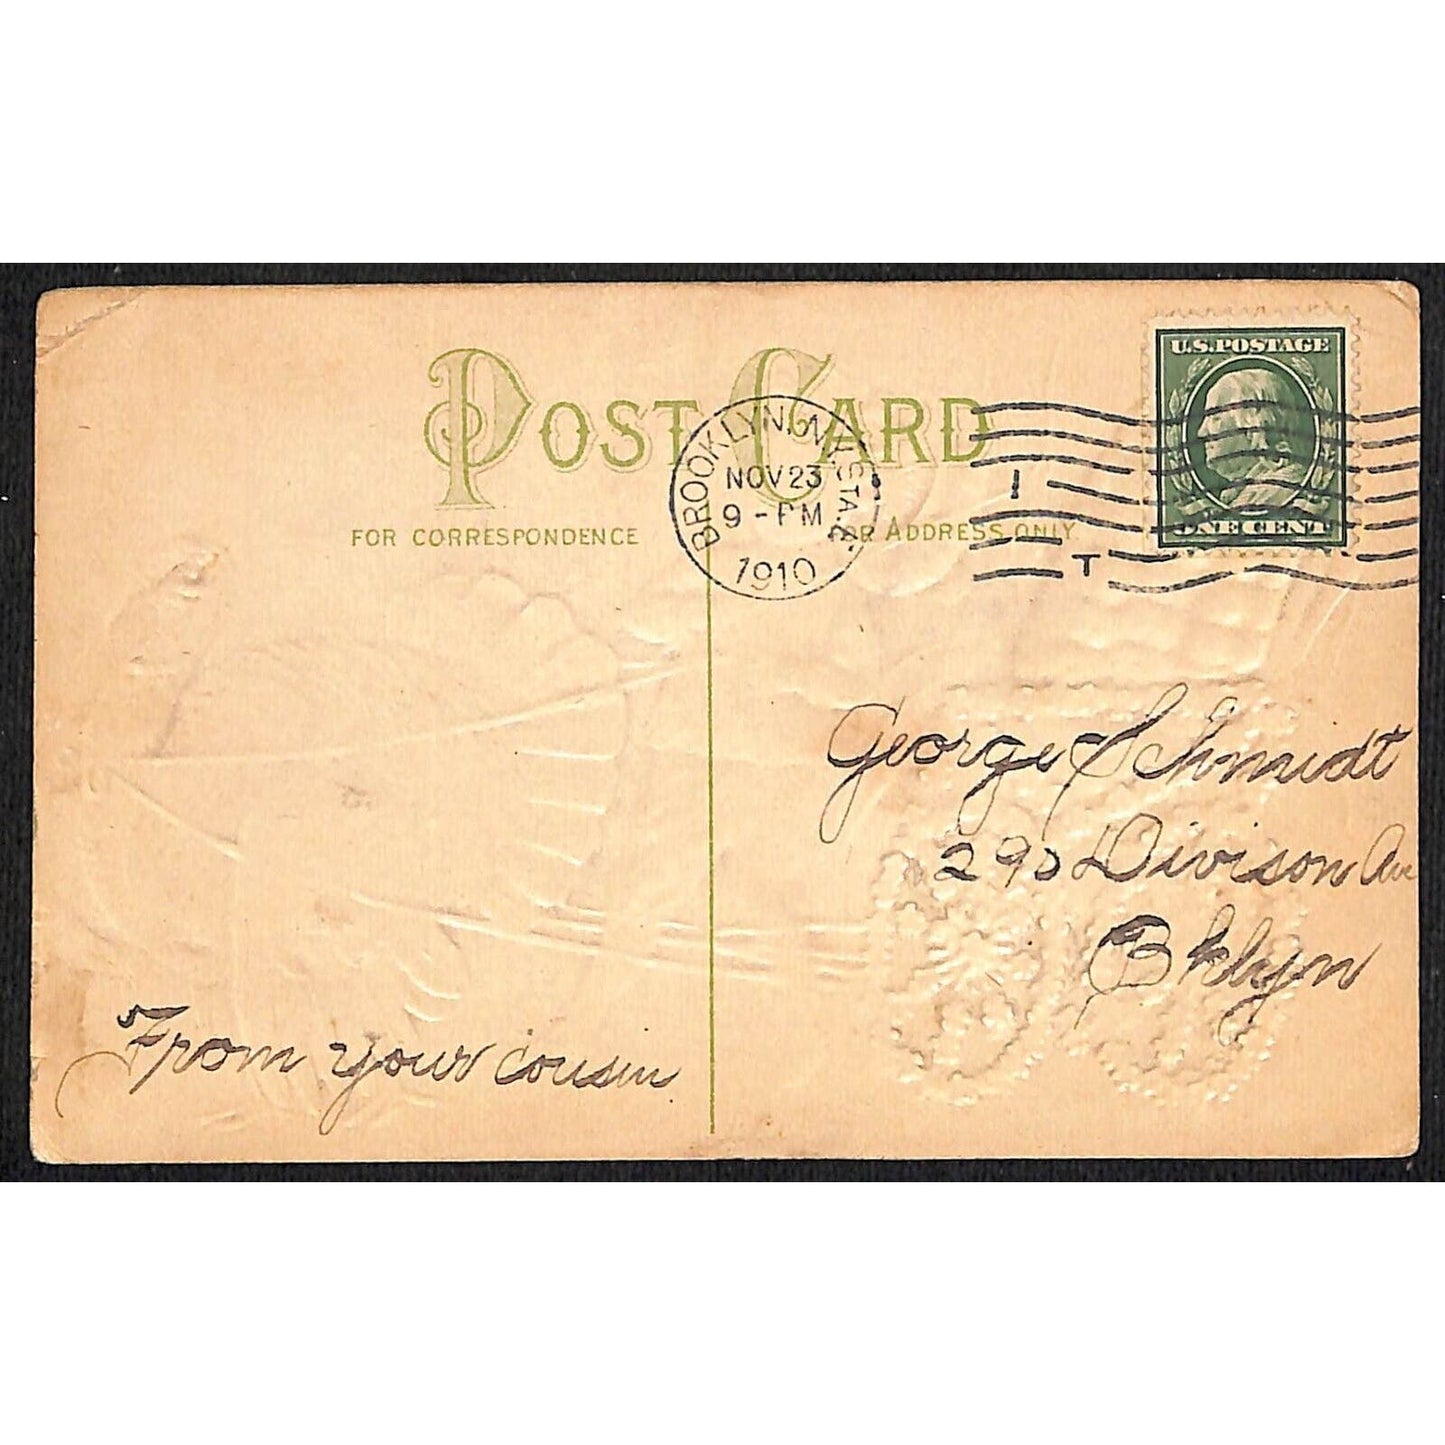 U.S. POSTAGE
POST CARD
BROOKLYN, N.Y. STA.
NOV 23
9 - PM
1910
I
T
ONE CENT
FOR CORRESPONDENCE
FOR ADDRESS ONLY
George Schmidt
290 Divison Ave
Bklyn
From your cousin